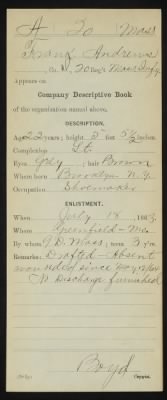 A 20 Mass
Frank Andrews
Co. , 20 Reg't Mass Infy.
Appears on
Company Descriptive Book
of the organization named above.
DESCRIPTION.
Age 22 years; height 5 feet 5½ inches.
Complexion Lt.
Eyes Grey; hair Brown
Where born Brooklyn N.Y.
Occupation Shoemaker
ENLISTMENT.
When July 18, 1863.
Where Greenfield Ms.
By whom D. Moss; term 3 y'rs.
Remarks: Drafted - Absent
wounded since May 12/64
No Discharge furnished
Boyd
Copyist.